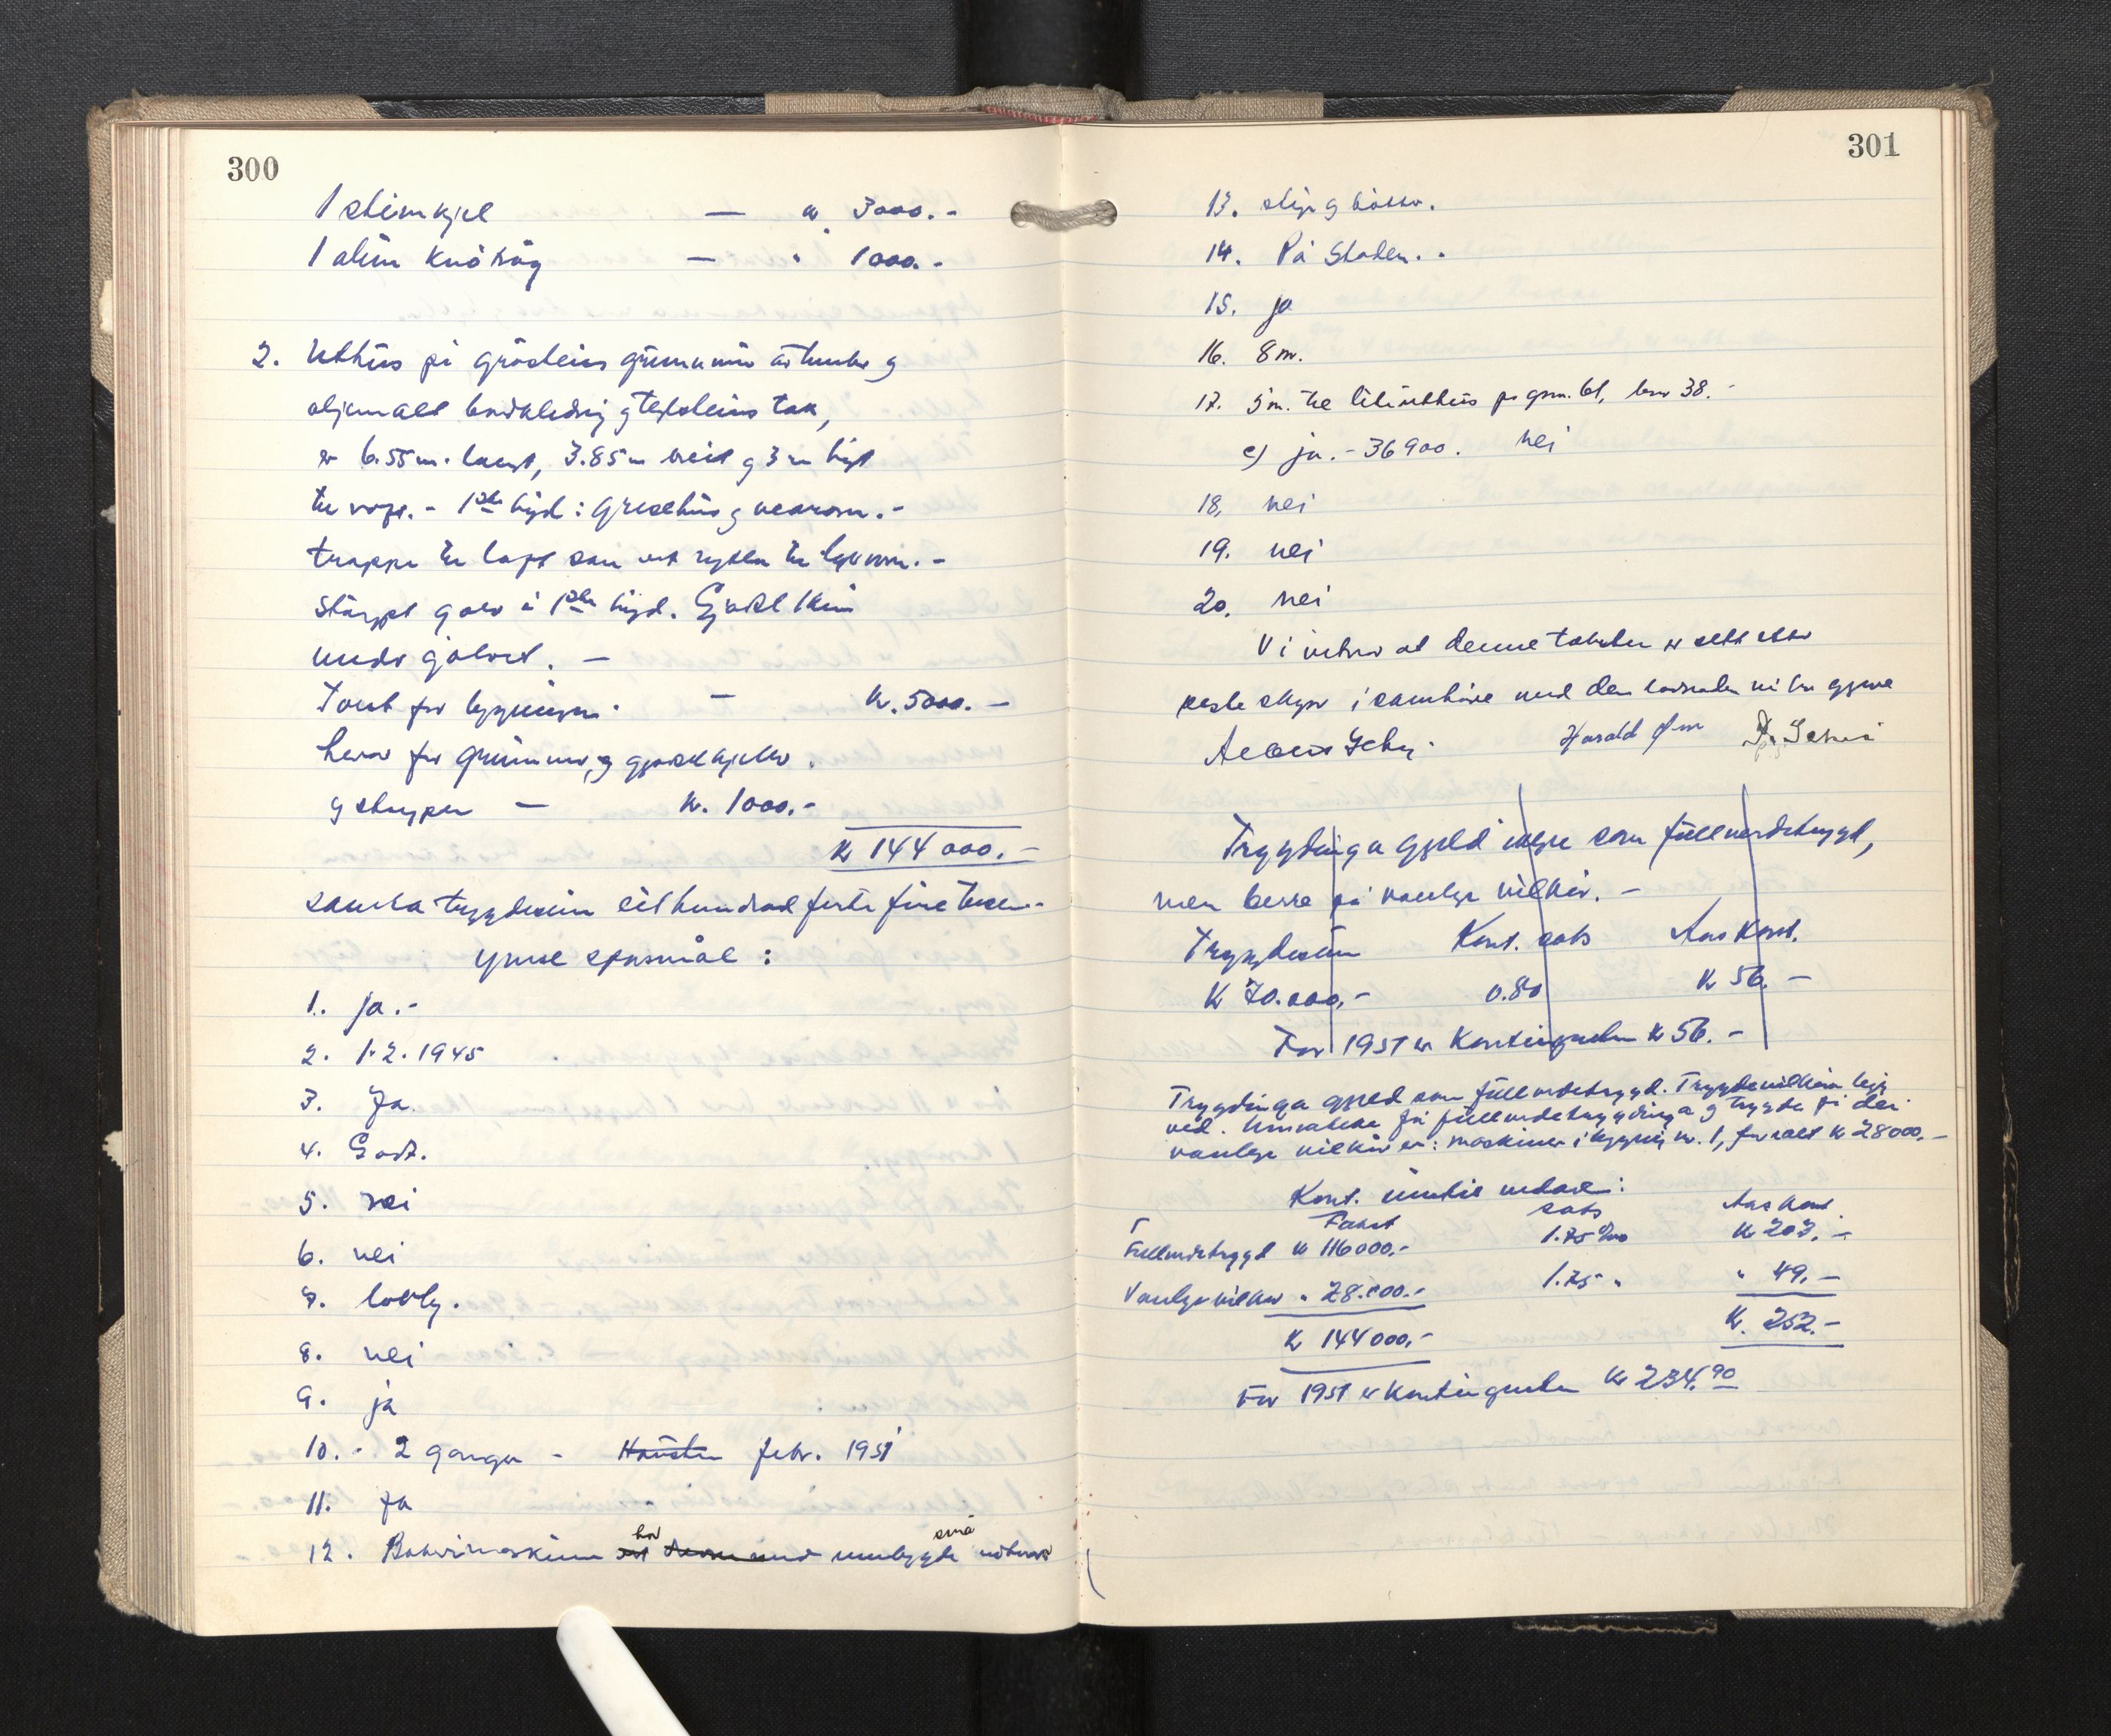 300
1 stimkjel — " 3000.-
1 alum knåtråg — " 1000.-
2. Uthus på gråsteins grunnmur av tumbr og
oljemalt bordkledning og teglsteins tak,
er 6.55 m. langt, 3.85 m breit og 3 m høgt
til røst. - 1ste høgd: grisehus og vedrom. -
trappe til loft som vert nytta til lagerrom. -
Støypt golv i 1ste høgd. Gjødslkum
under golvet. -
Takst for bygningen - kr. 5000.-
herav for grunnmur, og gjødselkjellar.
og støypen — kr. 1000.-
kr 144 000.-
samla trygdesum eit hundrad førti fire tusen.-
Ymse spursmål:
1. ja.-
2. 1.2.1945
3. Ja.
4. Godt.
5. nei
6. nei
7. lovleg.
8. nei
9. ja
10. - 2 gonger - Hausten febr. 1951
11. Ja
12. Bakarimaskinene har med umbygde små motorar
301
13. stige og bøtter.
14. På Staden..
15. ja
16. 8 m.
17. 5 m. til lite uthus på gnr. 61, bnr 38.-
e) ja. - 36900. nei
18. nei
19. nei
20. nei
Vi vitnar at denne taksten er sett etter
beste skyn i samhøve med den lovnaden vi har gjeve
Harald
Trygdinga gjeld ikkje som fullverdetrygd,
men berre på vanlege vilkår. -
Trygdesum Kont. sats Aars Kont.
Kr 70.000,- 0.80 Kr 56.-
For 1951 er Kontingenten kr 56.-
Trygdinga gjeld som fullverdetrygd. Trygdevilkåra ligg
ved. Unnateke frå fullverdetrygdinga og trygda på dei
vanlege vilkår er: maskiner i bygning nr. 1, for ialt kr 28000,-
Kont. :
Takst sats Aars Kont.
Fullverdetrygd kr 116000.- 1.75 ‰ kr 203.-
Vanlege vilkår " 28.000.- 1.75 " " 49.-
kr 144000.- kr. 252.-
For 1951 er Kontingenten kr 234.90